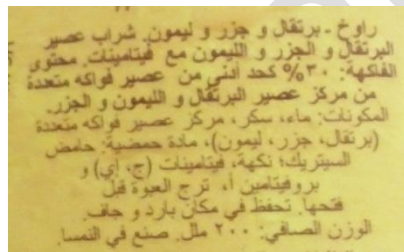 راوخ - برتقال و جزر و ليمون. شراب عصير
البرتقال و الجزر و الليمون مع فيتامينات. محتوى
الفاكهة: ٣٠% كحد أدنى من عصير فواكه متعددة
من مركز عصير البرتقال و الليمون و الجزر.
المكونات: ماء، سكر، مركز عصير فواكه متعددة
(برتقال، جزر، ليمون)، مادة حمضية: حامض
السيتريك؛ نكهة، فيتامينات (ج، إي) و
بروفيتامين أ، ترج العبوة قبل
فتحها. تحفظ في مكان بارد و جاف.
الوزن الصافي: ٢٠٠ ملل. صنع في النمسا.